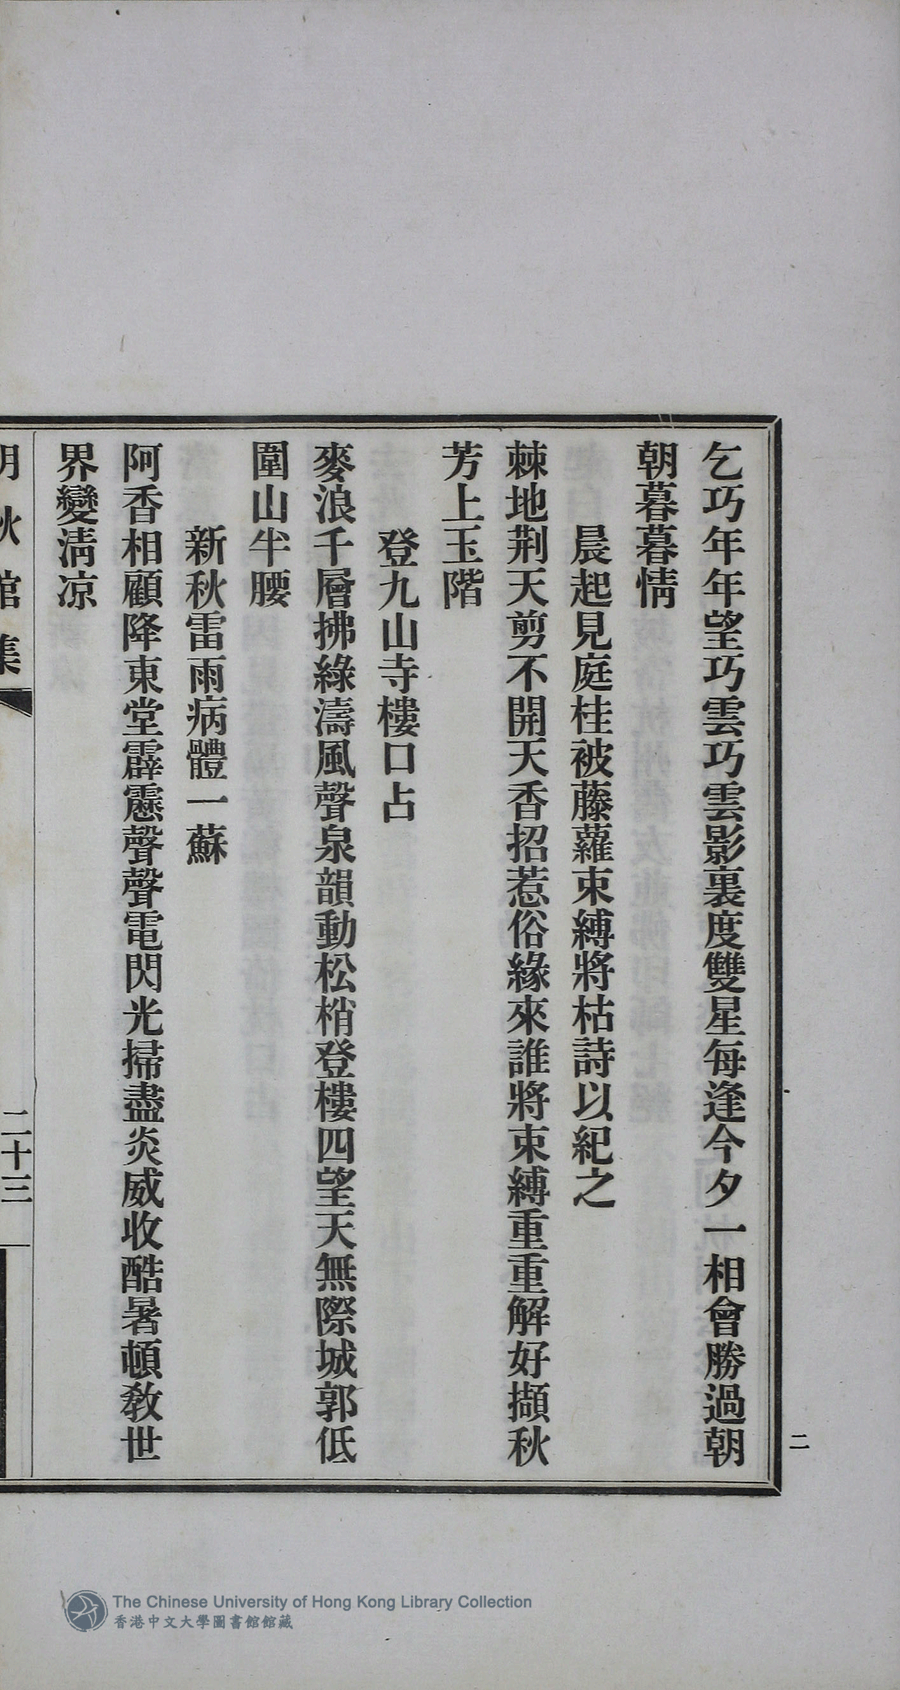 乞巧年年望巧雲巧雲影裏度雙星每逢今夕一相會勝過朝
朝暮暮情
晨起見庭桂被藤蘿束縛將枯詩以紀之
棘地荆天剪不開天香招惹俗緣來誰將束縛重重解好擷秋
芳上玉階
登九山寺樓口占
麥浪千層拂綠濤風聲泉韻動松梢登樓四望天無際城郭低
圍山半腰
新秋雷雨病體一蘇
阿香相顧降東堂霹靂聲聲電閃光掃盡炎威收酷暑頓教世
界變淸凉
秋館集
二十三
二
The Chinese University of Hong Kong Library Collection
香港中文大學圖書館館藏